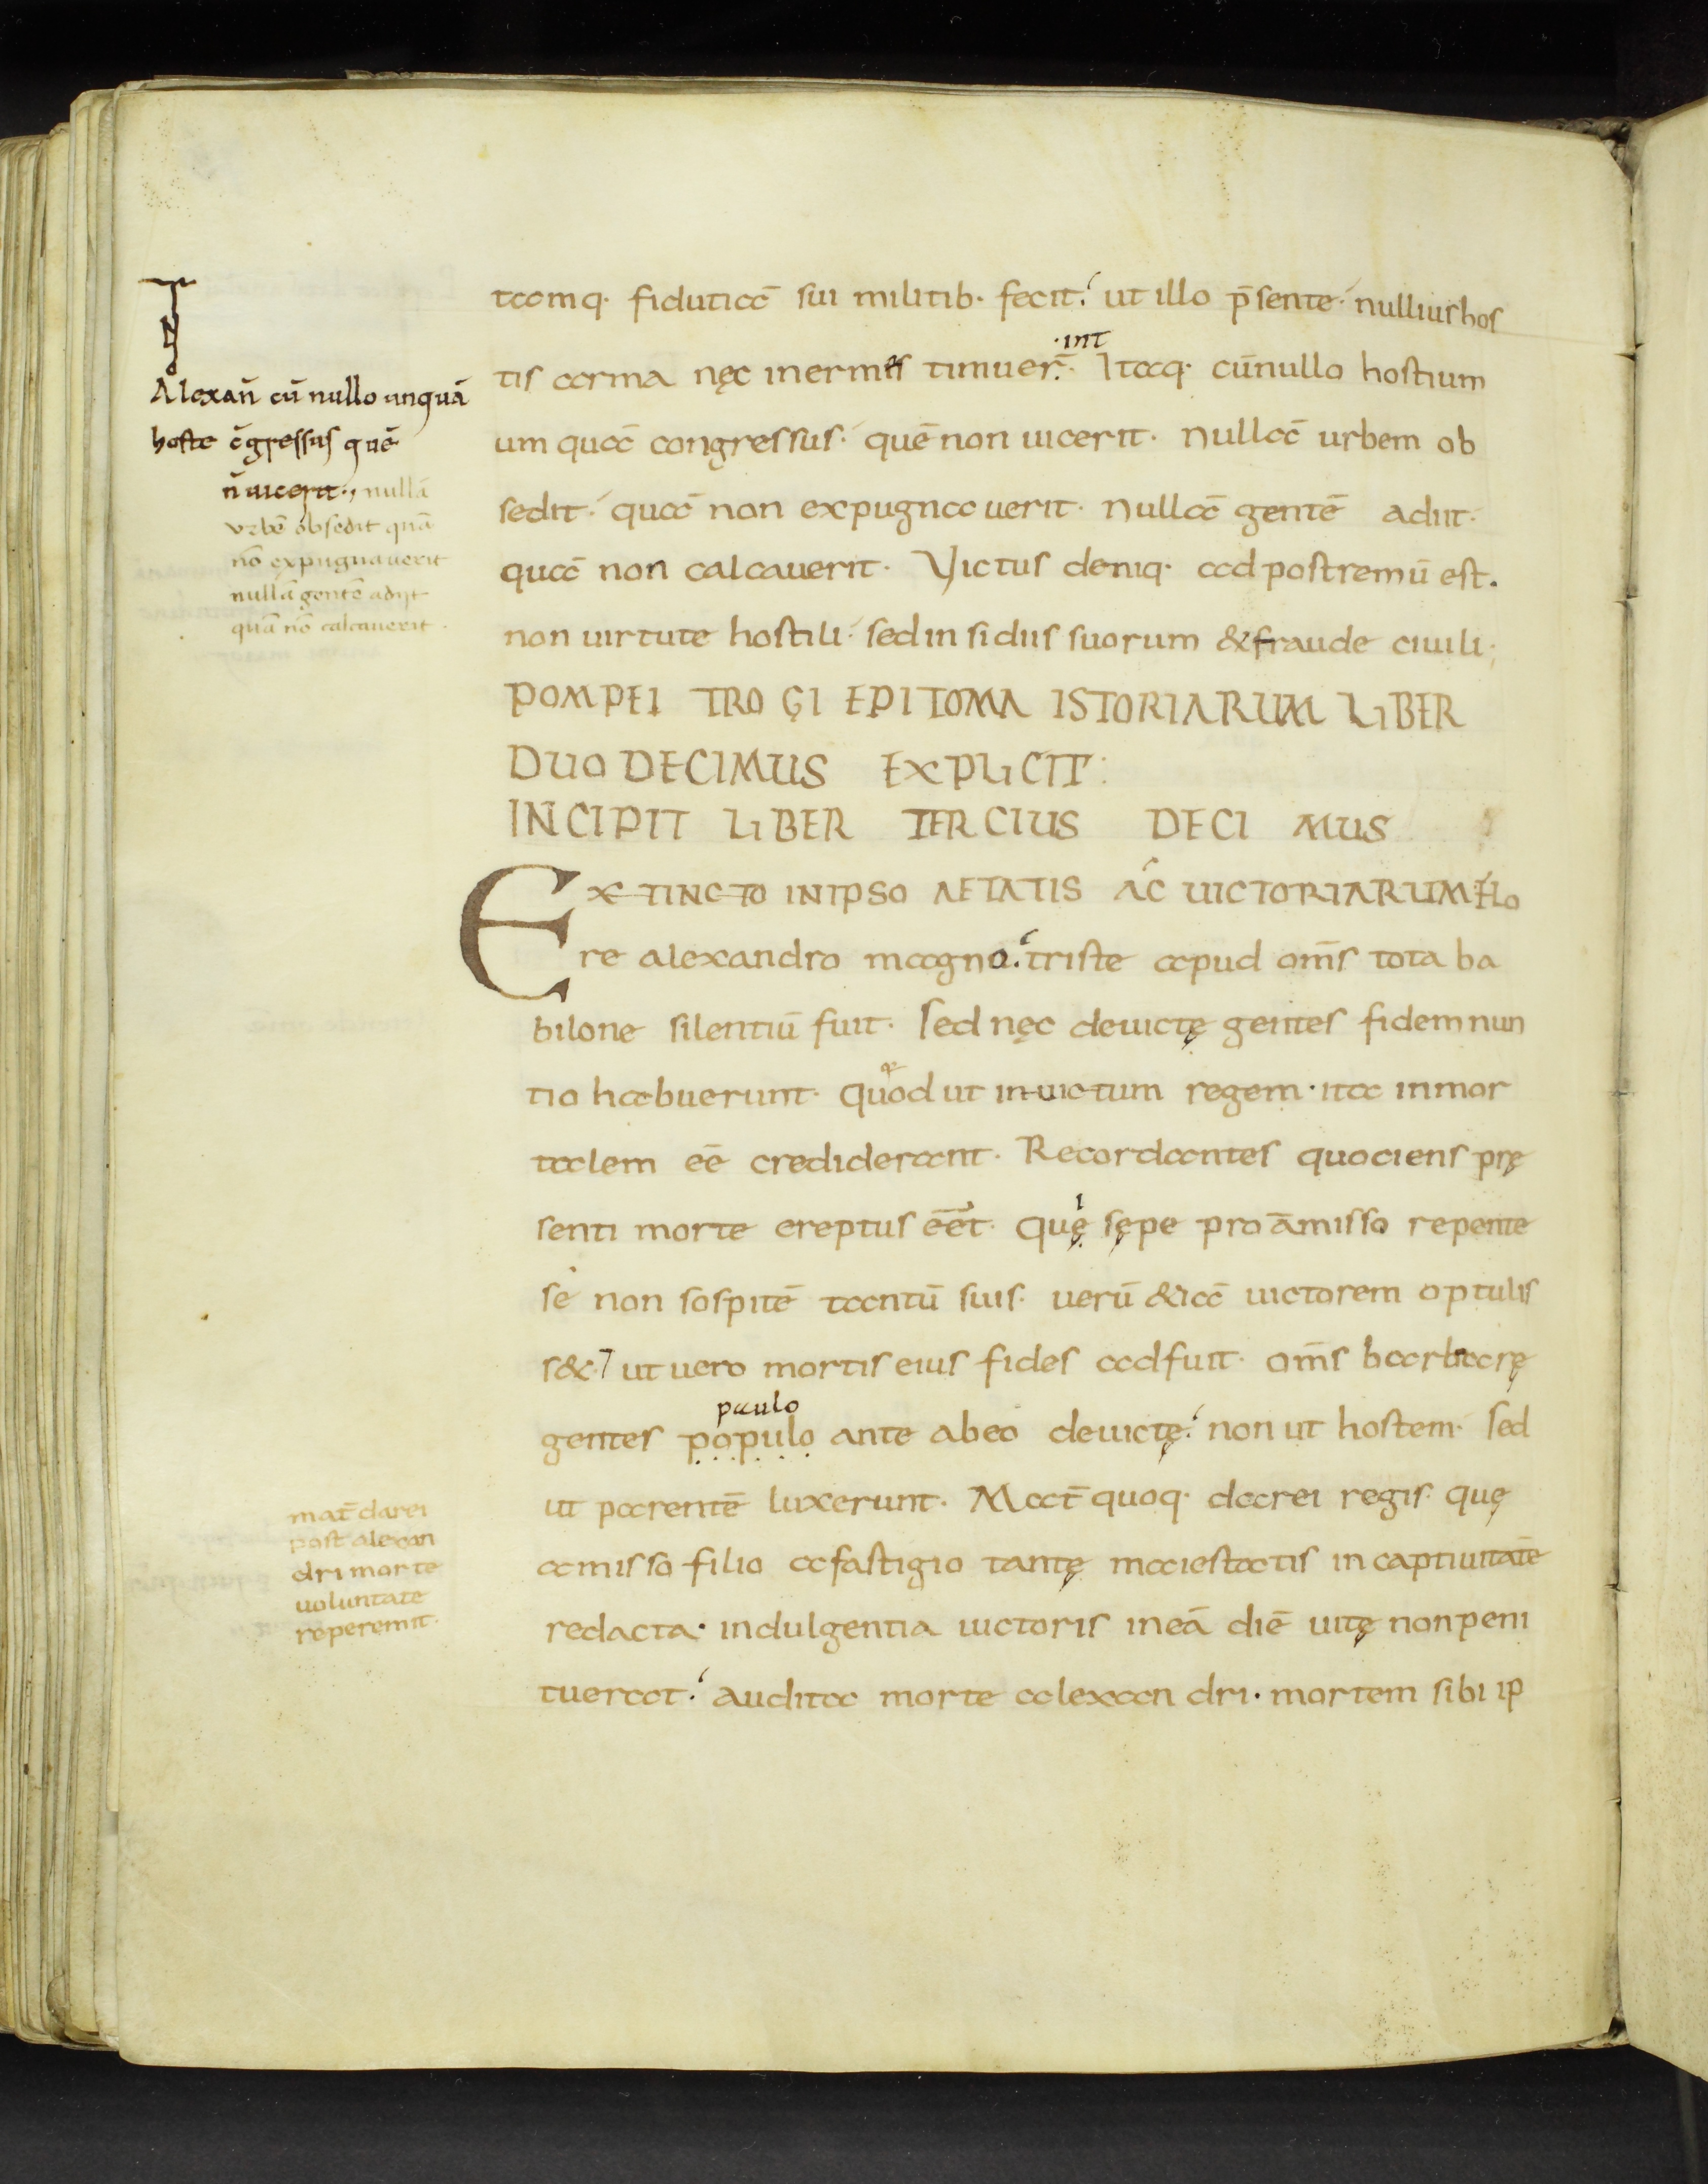 tamq· fidutiā sui militib· fecit· ut illo p̄sente· nullius hos
tis arma nęc inermis timuer̄· Itaq· cū nullo hostium
·int
um quā congressus· quē non uicerit· Nullā urbem ob
sedit· quā non expugnauerit· Nullā gentē adiit·
quā non calcauerit· Victus deniq· ad postremū est.
non uirtute hostili· sed insidiis suorum & fraude ciuili;
POMPEI TROGI EPITOMA ISTORIARUM LIBER
DUODECIMUS EXPLICIT:
INCIPIT LIBER TERCIUS DECIMUS
EXTINCTO IN IPSO AETATIS AC UICTORIARUM FLO
re alexandro magno· triste apud om̄s tota ba
bilone silentiū fuit· Sed nęc deuictę gentes fidem nun
tio habuerunt· Quod ut inuictum regem· ita inmor
talem eē crediderant· Recordantes quociens prę
senti morte ereptus eēt· Quę sępe pro āmisso repente
se non sospitē tantū suis· uerū & iā uictorem optulis
s&· ut uero mortis eius fides adfuit· om̄s barbarę
paulo
gentes populo ante ab eo deuictę· non ut hostem· sed
ut parentē luxerunt· Mat̄ quoq· darei regis· quę
amisso filio a fastigio tantę maiestatis in captiuitatē
redacta· indulgentia uictoris in eā diē uitę non peni
tuerat· audita morte alexandri· mortem sibi ip
Alexan̄ cū nullo unquā
hoste c̄gressus quē
n̄ uicerit·, nullā
vrbē obsedit quā
nō expugnauerit
nullā gentē adijt
quā nō calcauerit·
mat̄ darei
post alexan
dri morte
uoluntate
reperemit·